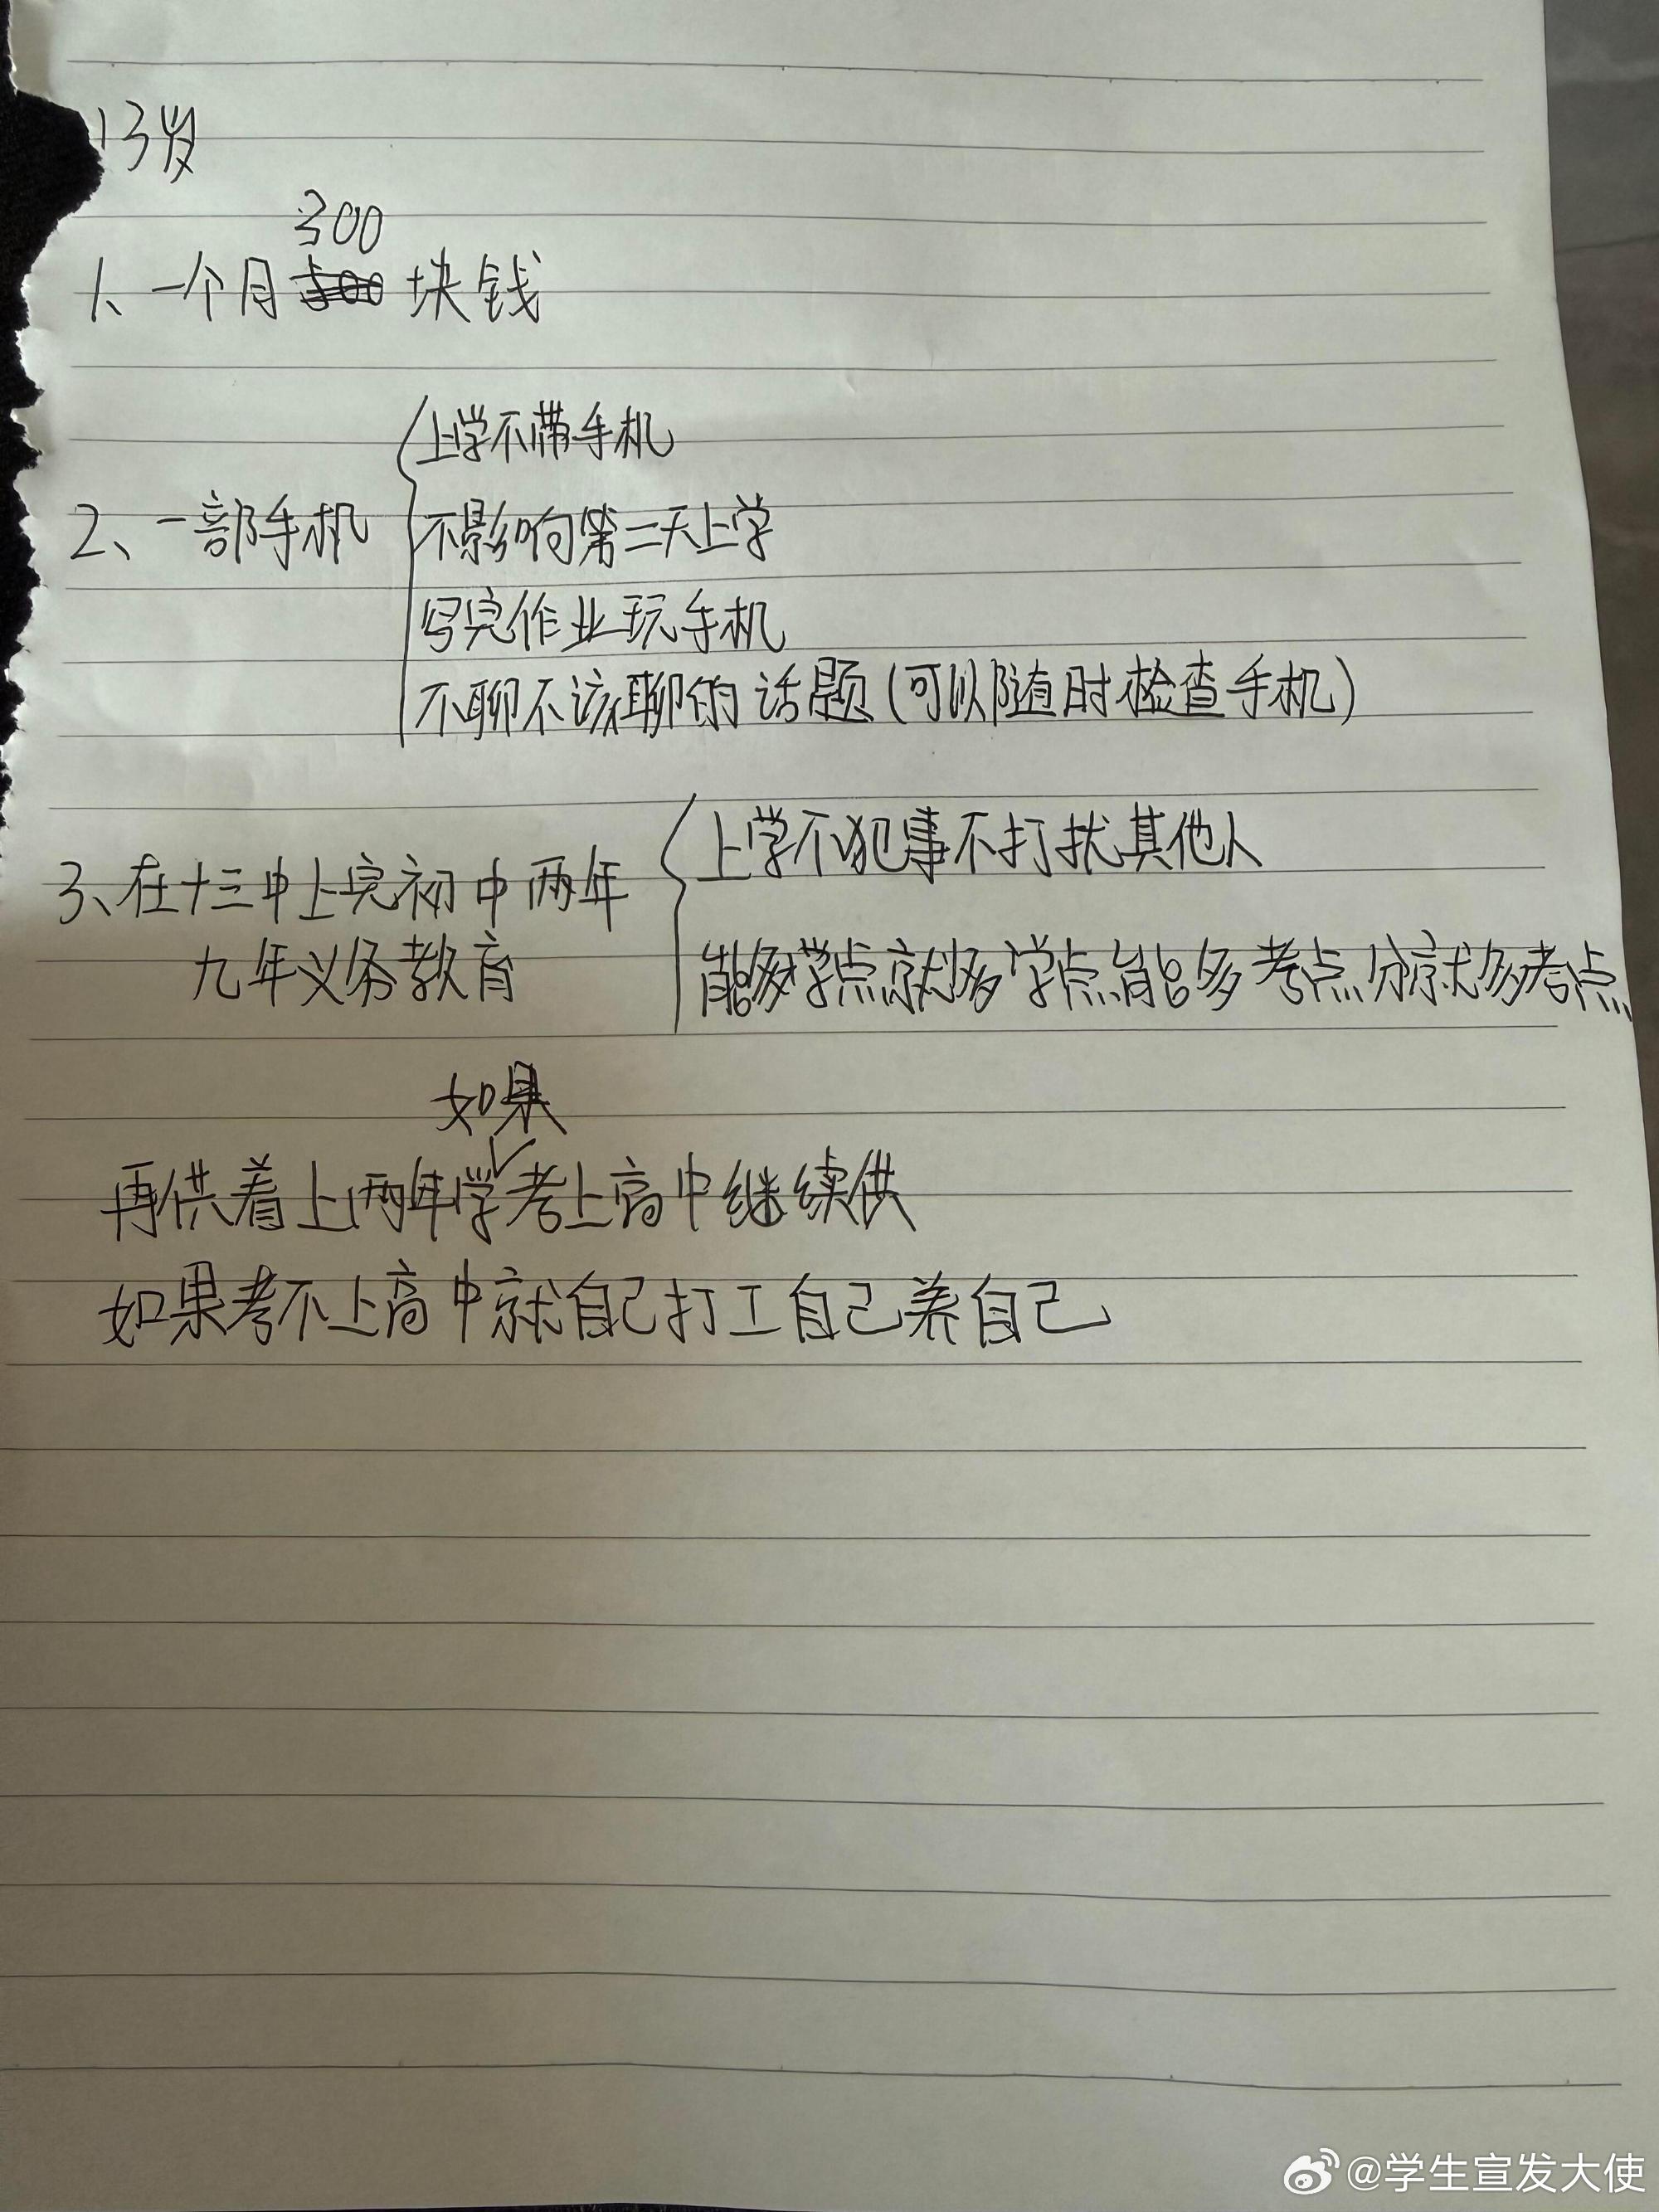 13岁
300
1、一个月500块钱
上学不带手机
2、一部手机
不影响第二天上学
写完作业玩手机
不聊不该聊的话题(可以随时检查手机)
上学不犯事不打扰其他人
3、在十三中上完初中两年
九年义务教育
能多学点就多学点能多考点分就多考点
如果
再供着上两年学考上高中继续供
如果考不上高中就自己打工自己养自己
@学生宣发大使